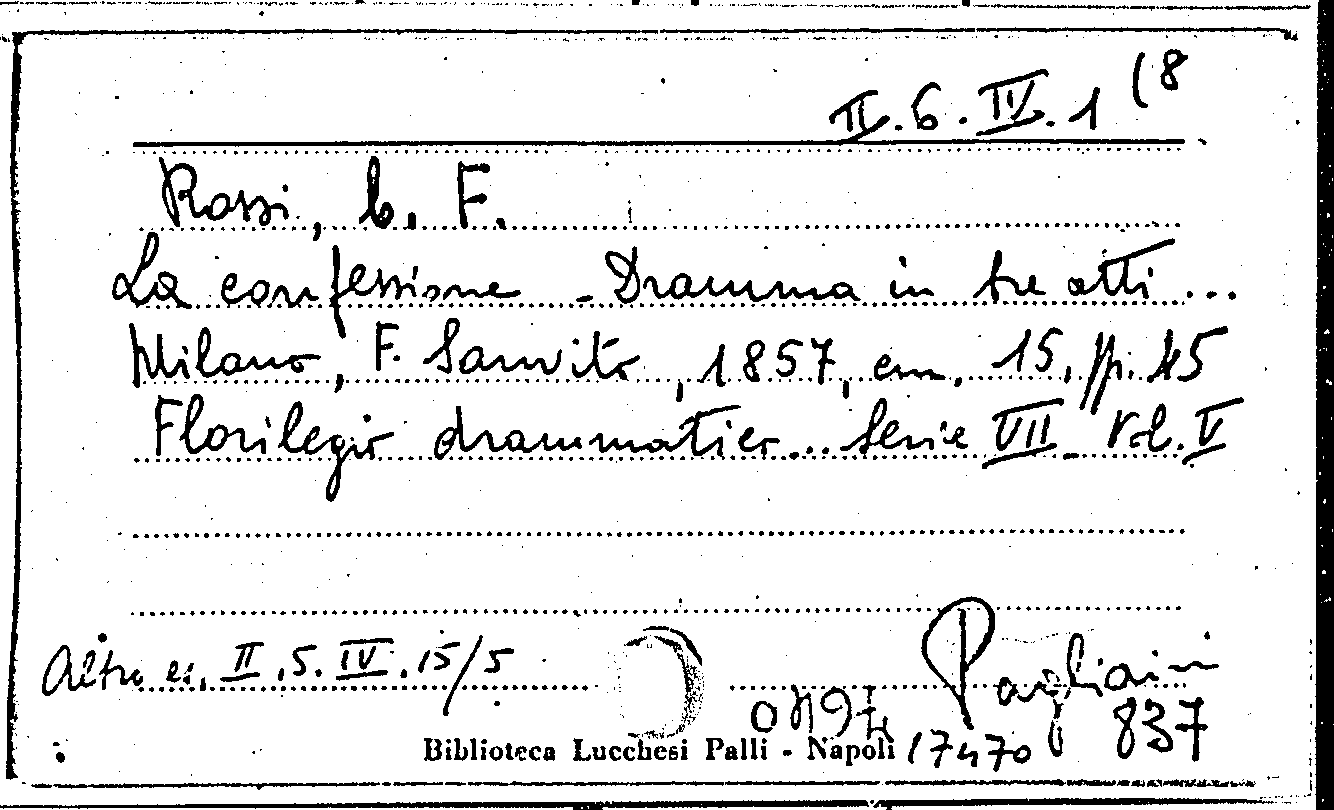 II.6.IV.1 (8
Rossi, C. F.
La confessione - Dramma in tre atti ...
Milano, F. Sanvito, 1857, cm. 15, pp. 45
Florilegio drammatico... Serie VII - Vol. V
Altro es. II.5.IV.15/5
Pagliaini
837
17470
Biblioteca Lucchesi Palli - Napoli